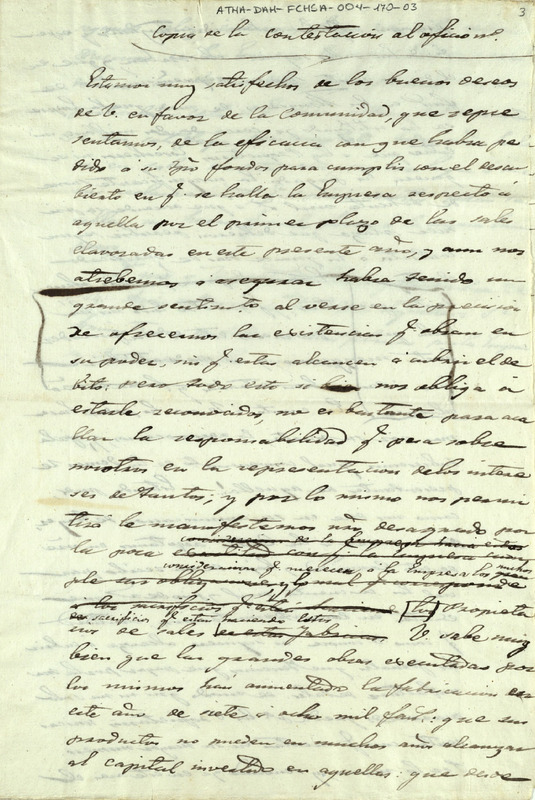 ATHA-DAH-FCHSA-004-170-03
3
Copia de la contestacion al oficio
Estamos muy satisfechos de los buenos deseos
de V. en favor de la Comunidad, que repre
sentamos, de la eficacia con que habra pe
dido á su fondos para cumplir con el descu
bierto en q. se halla la Empresa respecto á
aquella por el primer plazo de las sales
elavoradas en este presente año, y aun nos
atrebemos á asegurar habra tenido un
grande sentimto al verse en la precision
de ofrecernos las existencias q. obran en
su poder, sin q. estas alcancen á cubrir el de
bito: pero todo esto si nos obliga á
estarle reconocidos, no es bastante para aca
llar la responsabilidad q. pesa sobre
nosotros en la representacion de los intere
ses de tantos; y por lo mismo nos permi
tirá le manifestemos nro desagrado por
la poca
consideracion q. merecen á la Empresa los muchos
de
á los sacrificios q. los Propieta
sacrificios q. estan haciendo estos
rios de sales V. sabe muy
bien que las grandes obras executadas por
los mismos han aumentado la fabricacion en
este año de siete á ocho mil fan.s: que sus
productos no pueden en muchos años alcanzar
al capital invertido en aquellas: que desde